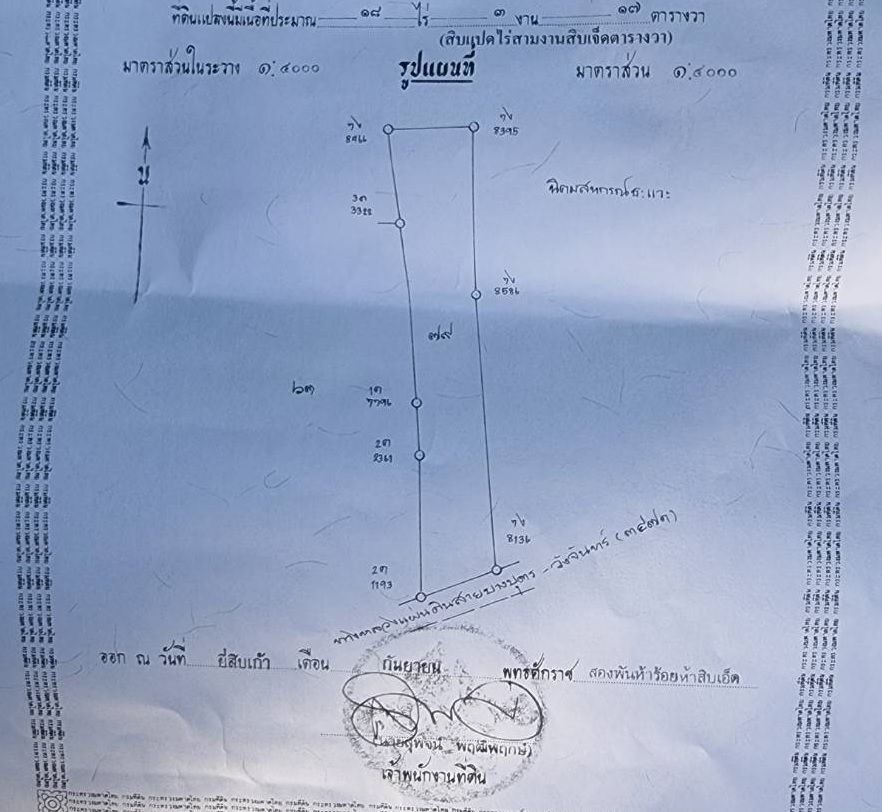 ที่ดินแปลงนี้มีเนื้อที่ประมาณ ๑๘ ไร่ ๓ งาน ๑๗ ตารางวา
(สิบแปดไร่สามงานสิบเจ็ดตารางวา)
มาตราส่วนในระวาง ๑:๔๐๐๐ รูปแผนที่ มาตราส่วน ๑:๔๐๐๐
8395
น
3ต
นิคมสหกรณ์
8586
๗๙
๖๓
1ต
2ต
8136
2ต
1193
ทางหลวงแผ่นดินสาย - วังจันทร์ (๓๔๗๓)
ออก ณ วันที่ ยี่สิบเก้า เดือน กันยายน พุทธศักราช สองพันห้าร้อยห้าสิบเอ็ด
พฤฒิพฤกษ์)
เจ้าพนักงานที่ดิน